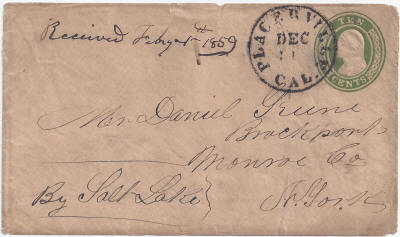 TEN
CENTS
PLACERVILLE
DEC
CAL.
Received Feby 1859
Mr. Daniel
Brockport
Monroe Co
By Salt Lake
N. York